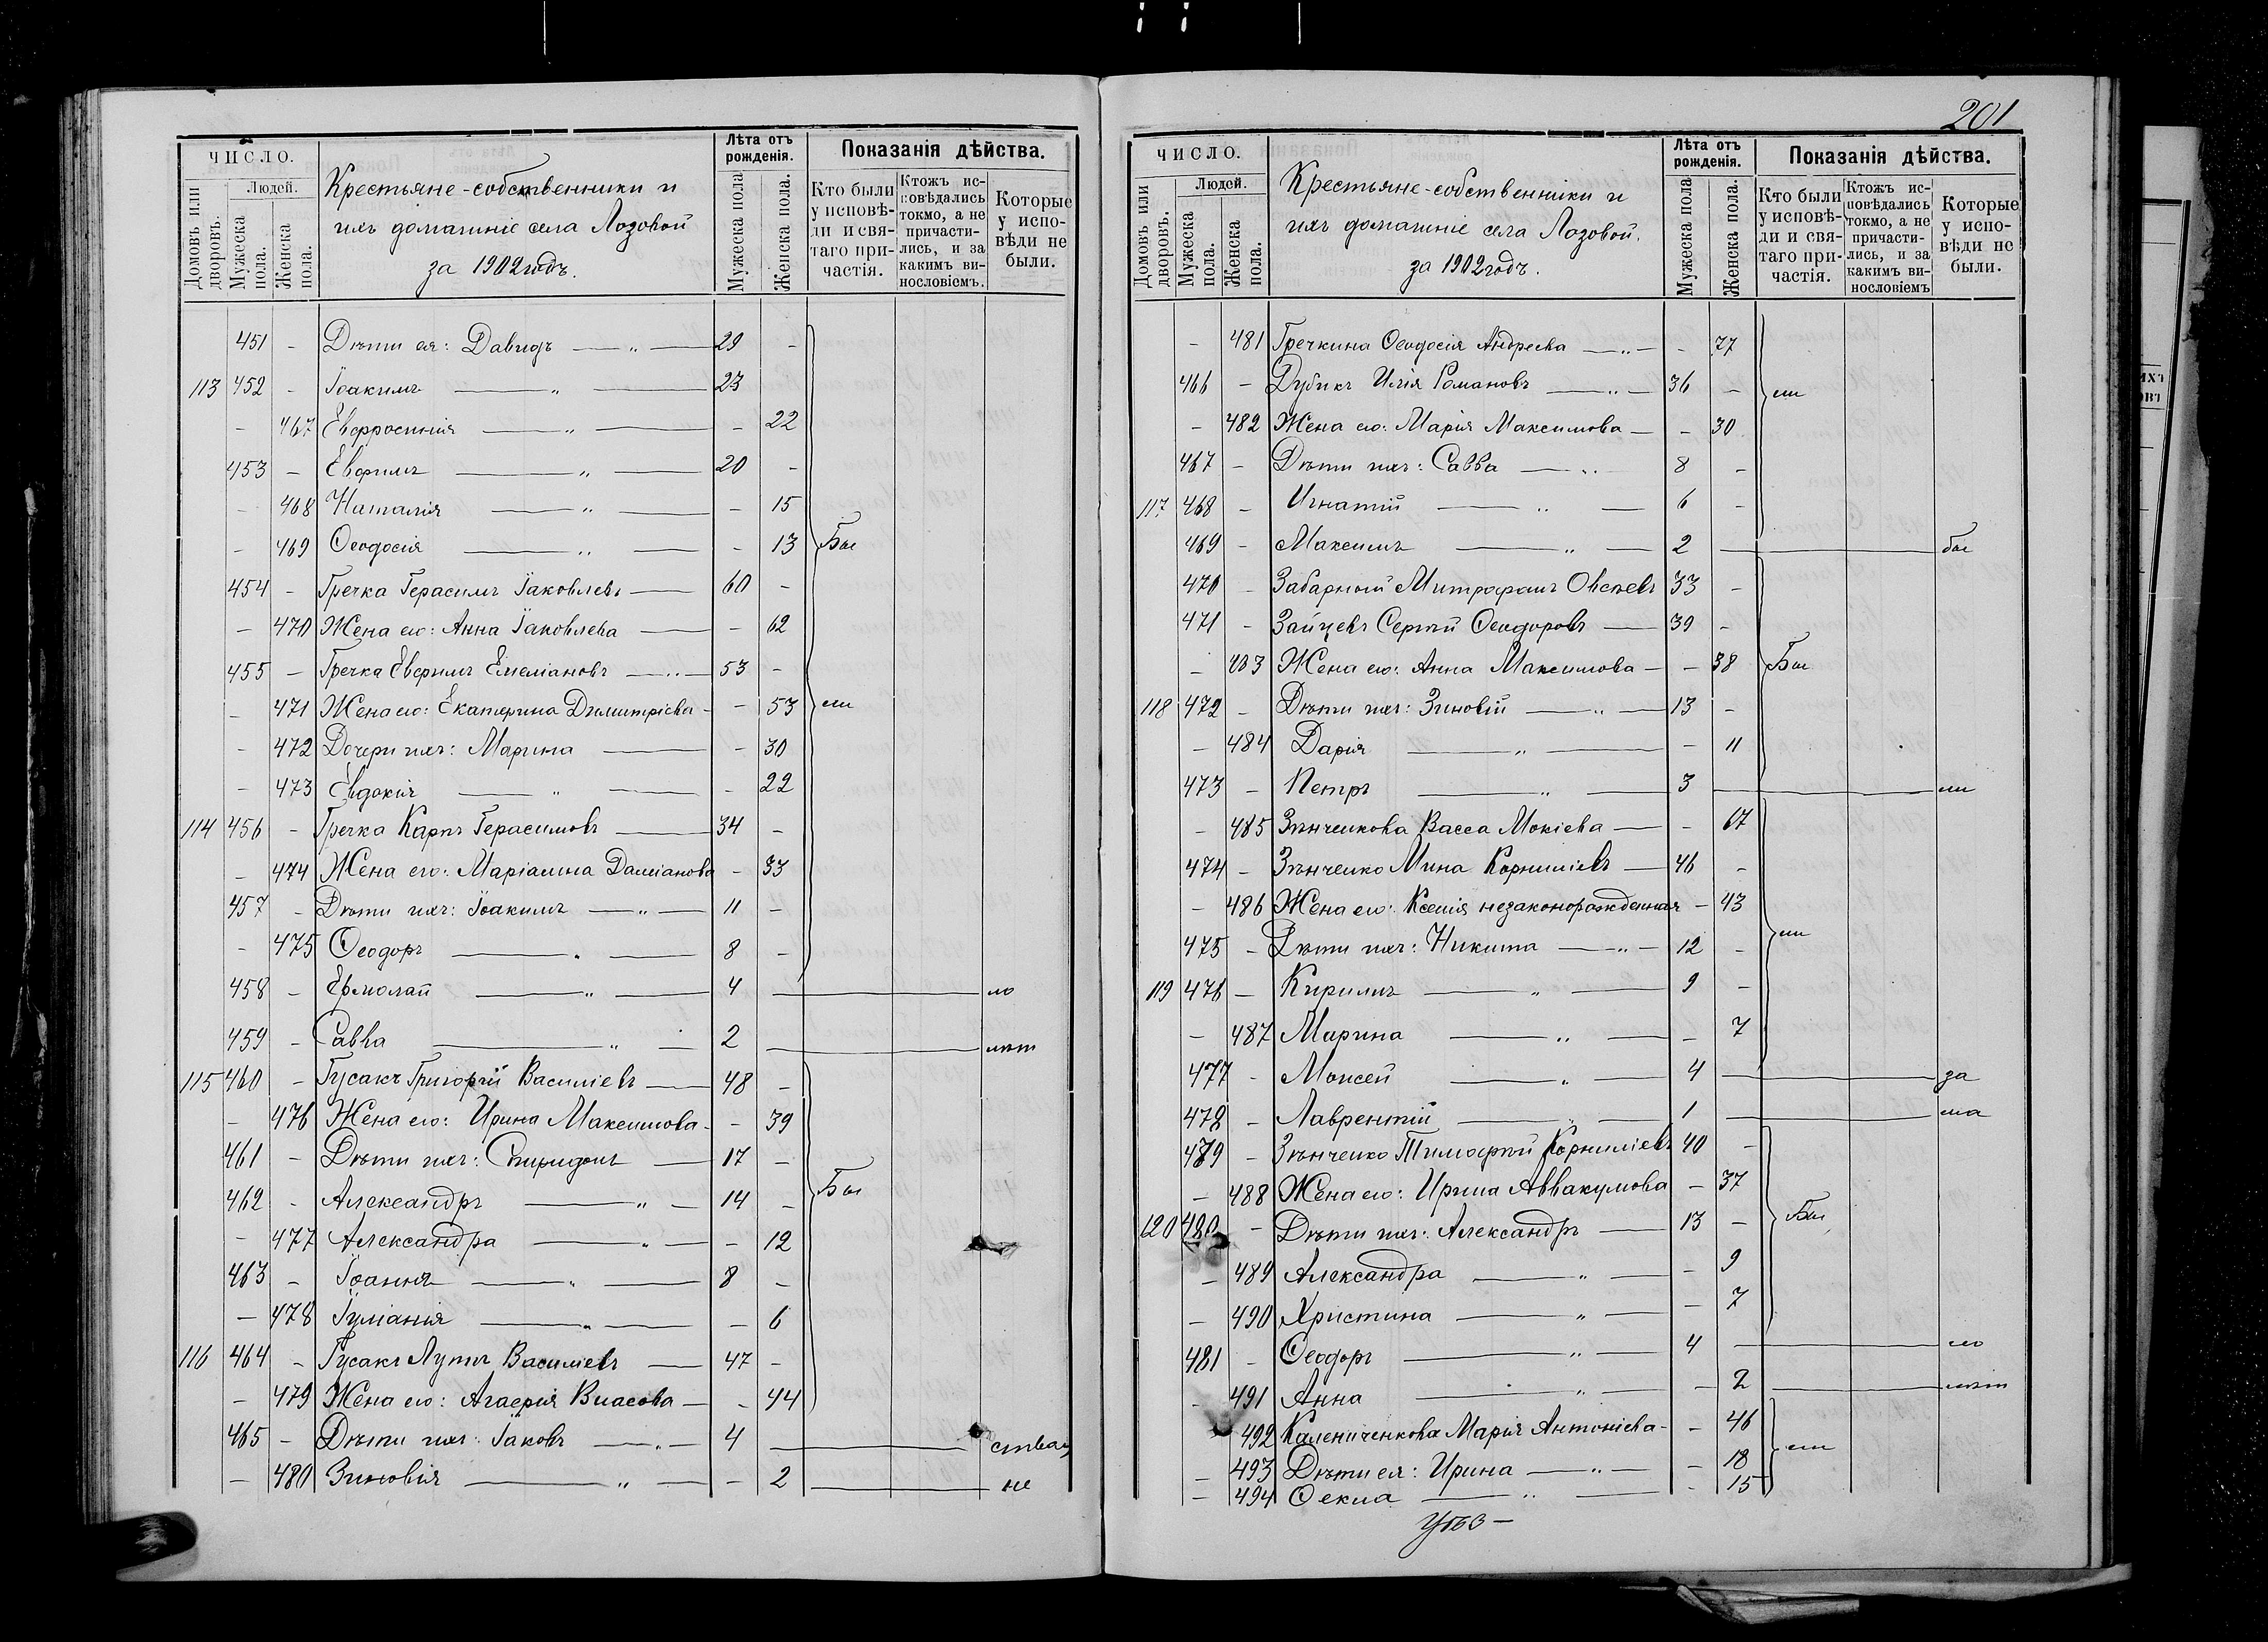 201
ЧИСЛО.
Домовъ или дворовъ.
Людей.
Мужеска пола.
Женска пола.
Крестьяне-собственники и
ихъ домашніе села Лозовой
за 1902 годъ.
Лѣта отъ рожденія.
Мужеска пола
Женска пола.
Показанія дѣйства.
Кто были у исповѣди и святаго причастія.
Ктожъ исповѣдались токмо, а не причастились, и за какимъ винословіемъ.
Которые у исповѣди не были.
451 - Дѣти ея: Давидъ — „ — 29 -
113 452 - Іоакимъ — „ — 23
- 467 Евфросинія — „ — - 22
453 - Евфимъ — „ — 20 -
- 468 Наталія — „ — - 15
- 469 Ѳеодосія — „ — - 13 Бы
454 - Гречка Герасимъ Іаковлевъ — 60 -
- 470 Жена его: Анна Іаковлева — - 62
455 - Гречка Евфимъ Емеліановъ — „ — 53 -
- 471 Жена его: Екатерина Димитріева - - 53 ли
- 472 Дочери ихъ: Марина — - 30
- 473 Евдокія — „ — - 22
114 456 - Гречка Карпъ Герасимовъ — 34 -
- 474 Жена его: Маріамна Даміанова - 33
457 - Дѣти ихъ: Іоакимъ — „ — 11 -
- 475 Ѳеодоръ — „ — 8 -
458 - Ермолай — „ — 4 — ло
459 - Савва — „ — 2 — лѣт
115 460 - Гусакъ Григорій Василіевъ — 48 -
- 476 Жена его: Ирина Максимова - - 39
461 - Дѣти ихъ: Спиридонъ — 17 -
462 - Александръ — „ — 14 - Бы
- 477 Александра — „ — - 12
463 - Іоаннъ — „ — 8 -
- 478 Іуліанія — „ — - 6
116 464 - Гусакъ Луппъ Василіевъ — 47 -
- 479 Жена его: Агафія Власова — - 44
465 - Дѣти ихъ: Іаковъ — „ — 4 —
- 480 Зиновія — „ — - 2 — не
ЧИСЛО.
Домовъ или дворовъ.
Людей.
Мужеска пола.
Женска пола.
Крестьяне-собственники и
ихъ домашніе села Лозовой.
за 1902 годъ.
Лѣта отъ рожденія.
Мужеска пола
Женска пола.
Показанія дѣйства.
Кто были у исповѣди и святаго причастія.
Ктожъ исповѣдались токмо, а не причастились, и за какимъ винословіемъ
Которые у исповѣди не были.
- 481 Гречкина Ѳеодосія Андреева — „ — - 77
466 - Дубикъ Илія Романовъ — „ — 36 - ли
- 482 Жена его: Марія Максимова — - 30
467 - Дѣти ихъ: Савва — „ 8 -
117 468 - Игнатій — „ — 6 -
469 - Максимъ — „ — 2 — бы
470 - Забарный Митрофанъ Овсѣевъ 33 -
471 - Зайцевъ Сергій Ѳеодоровъ — 39 -
- 483 Жена его: Анна Максимова — - 38 Бы
118 472 - Дѣти ихъ: Зиновій — „ — 13 -
- 484 Дарія — „ — - 11
473 - Петръ — „ — 3 — ли
- 485 Зѣнченкова Васса Мокіева — - 67
474 - Зѣнченко Мина Корниліевъ — 46 -
- 486 Жена его: Ксенія незаконорожденная - 43
475 - Дѣти ихъ: Никита — „ — 12 - ли
119 476 - Кириллъ — „ — 9 -
- 487 Марина — „ — - 7
477 - Моисей — „ — 4 — за
478 - Лаврентій — „ — 1 — ма
479 - Зѣнченко Тимофей Корниліевъ 40 -
- 488 Жена его: Ирина Аввакумова - 37
120 480 - Дѣти ихъ: Александръ — 13 - Бы
- 489 Александра — „ — - 9
- 490 Христина — „ — - 7
481 - Ѳеодоръ — „ — 4 — ло
- 491 Анна — „ — - 2 — лѣт
492 Калениченкова Марія Антоніева - - 46
- 493 Дѣти ея: Ирина — „ — - 18 ли
- 494 Ѳекла — „ — - 15